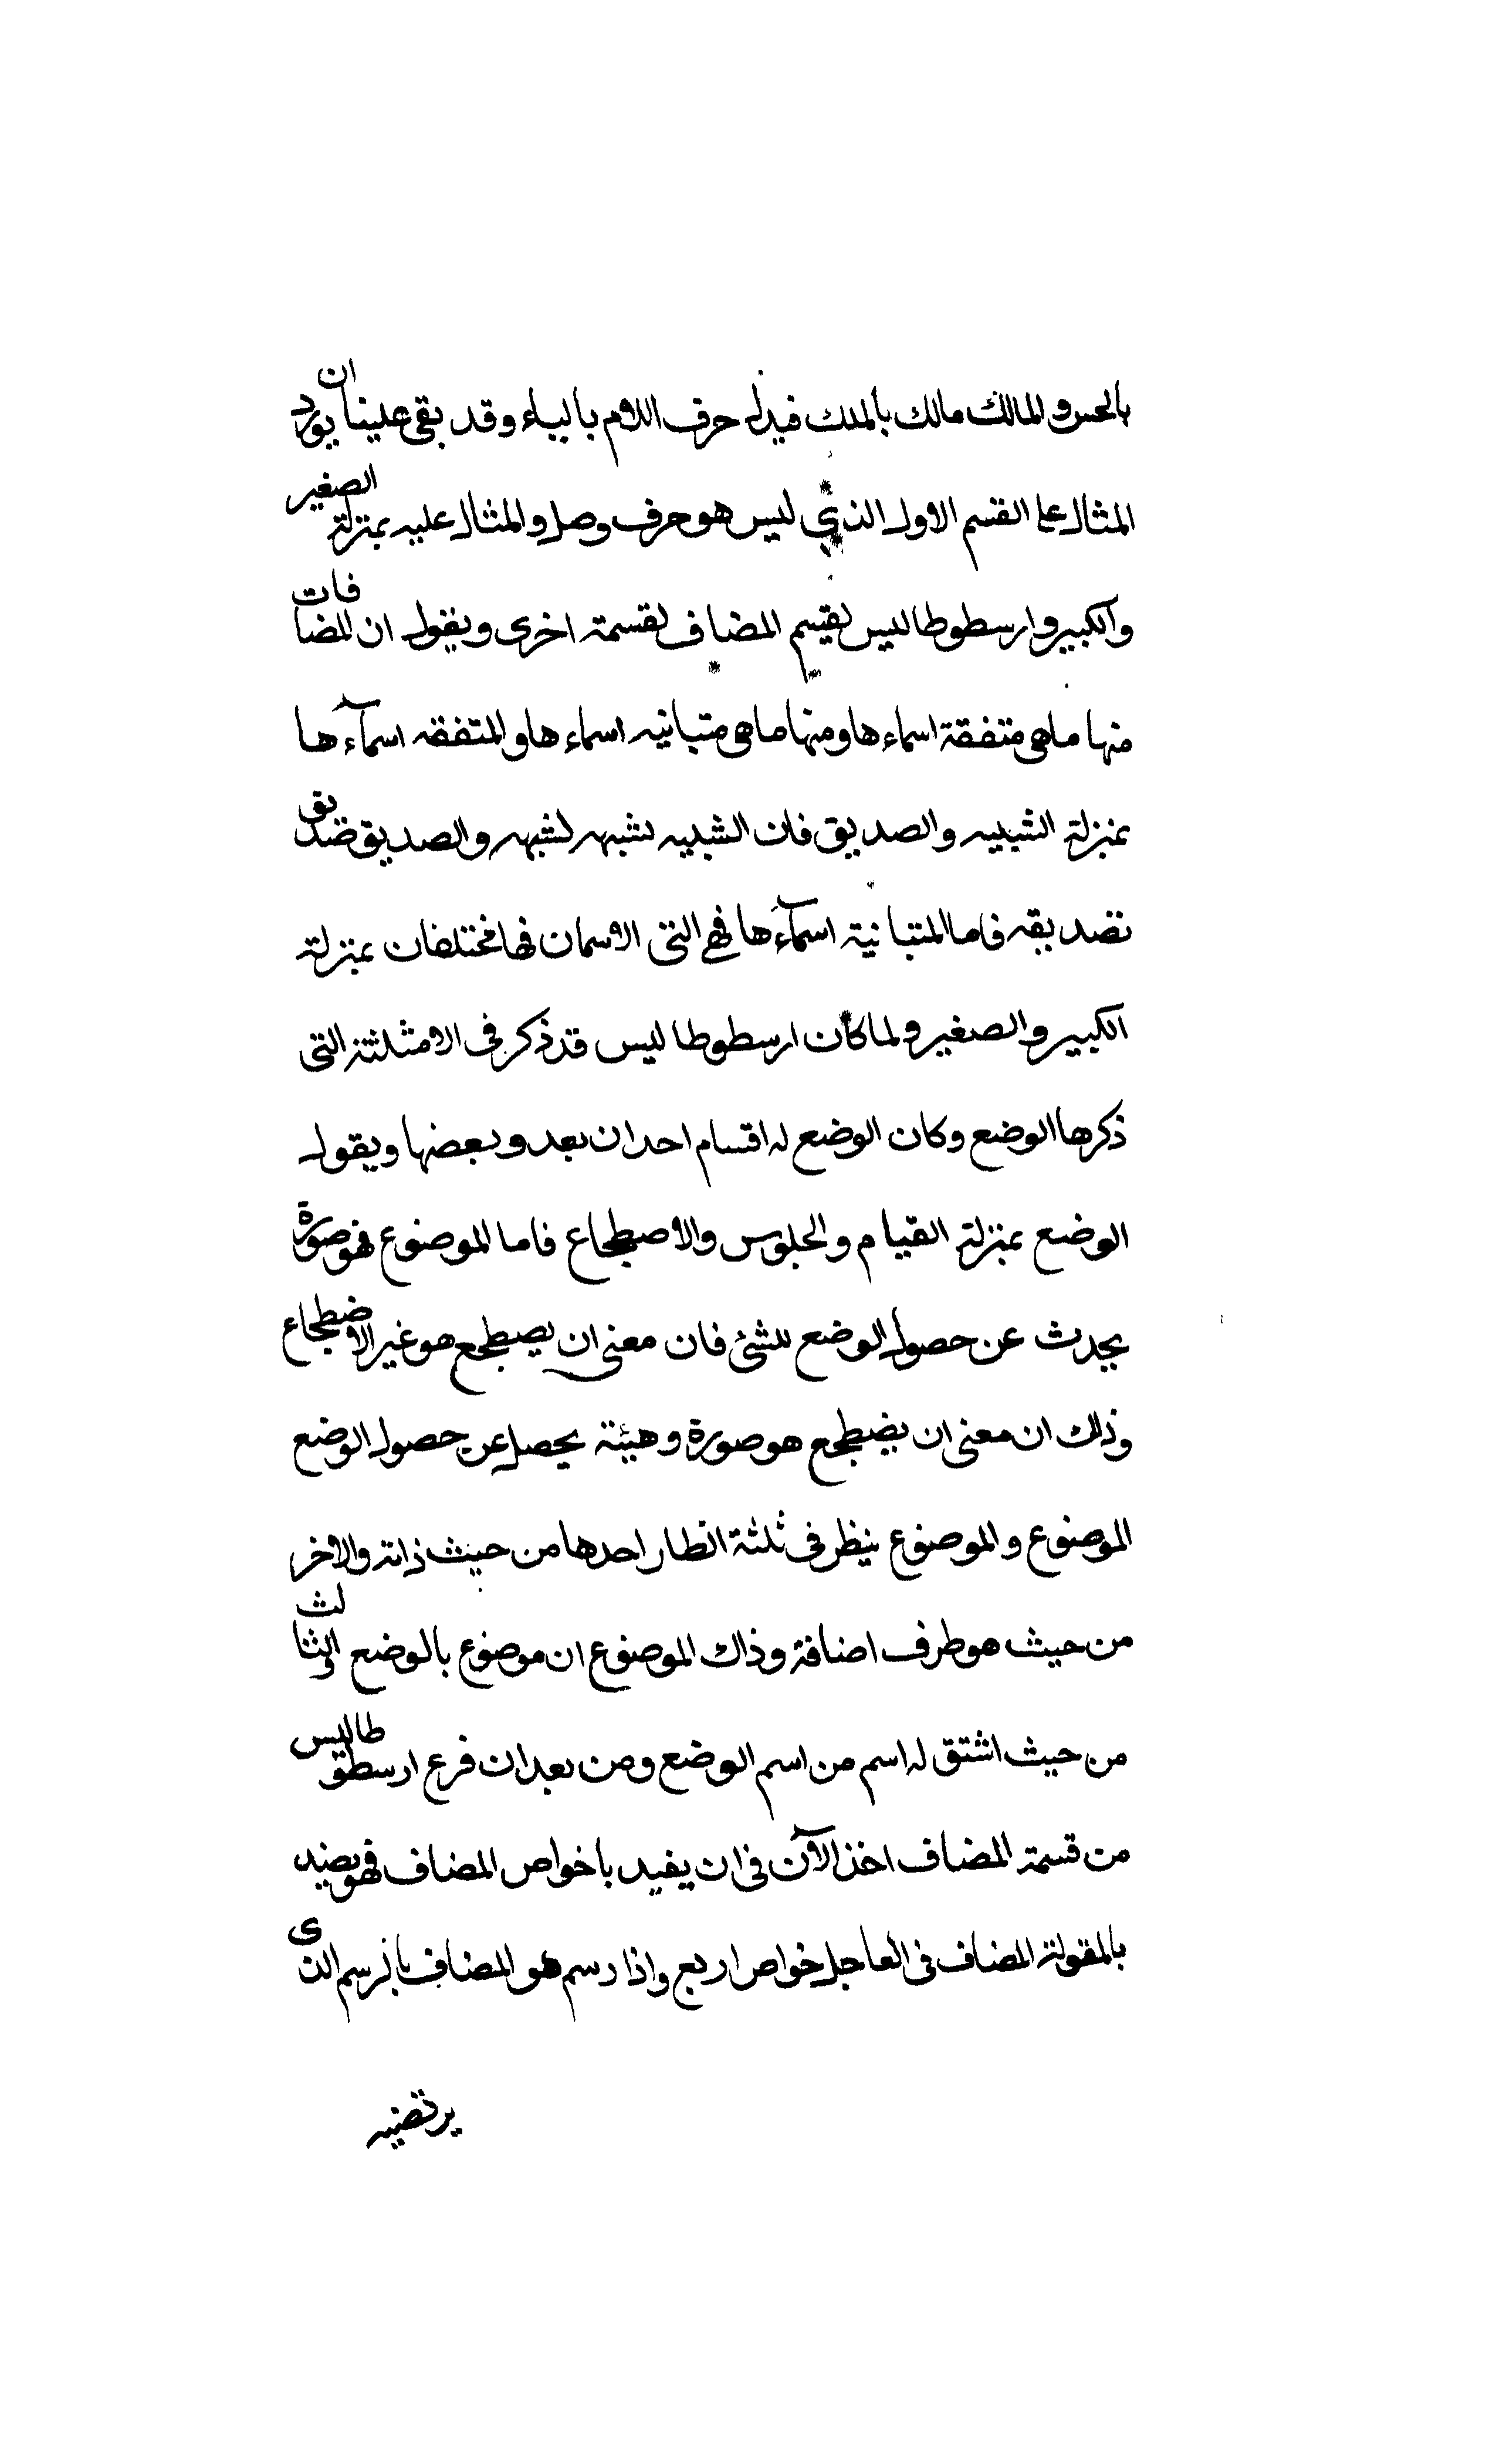 بالحس والمالك مالك بالملك فيدل حرف اللام بالباء وقد بقى علينا ان يورد
المثال على القسم الاول الذى ليس هو حرف وصل والمثال عليه بمنزلة الصغير
والكبير وارسطوطاليس يقسم المضاف بقسمة اخرى ويقول ان المضافات
منها ما هى متفقة اسماءها ومنها ما هى متبانيه اسماءها والمتفقه اسمآءها
بمنزلة الشبيه والصديق فان الشبيه شبيه لشبهه والصديق صديق
تصديقه فاما المتبانية اسمآءها فهى التى الاسمان فها مختلفان بمنزلة
الكبير والصغير ولما كان ارسطوطاليس قد ذكر فى الامثلة التى
ذكرها الوضع وكان الوضع له اقسام احد ان يعد وبعضها ويقول
الوضع بمنزلة القيام والجلوس والاصطجاع فاما الموضوع فهو صورة
يحدث عن حصول الوضع للشئ فان معنى ان يصطجع هو غير الاضطجاع
وذلك ان معنى ان يضطجع هو صورة وهيئة يحصل عن حصول الوضع
الموضوع والموضوع ينظر فى ثلثة انطار احدها من حيث ذاته والاخر
من حيث هو طرف اضافة وذاك الموضوع ان موضوع بالوضع والثالث
من حيث اشتق له اسم من اسم الوضع ومن بعد ان فرع ارسطوطاليس
من قسمة المضاف اخذ الآن فى ان يفيد باخواص المضاف فهو يضيد
بالمقولة المضاف فى العاجل خواص اربع واذا رسم هو المضاف بالرسم الذى
يرتضيه